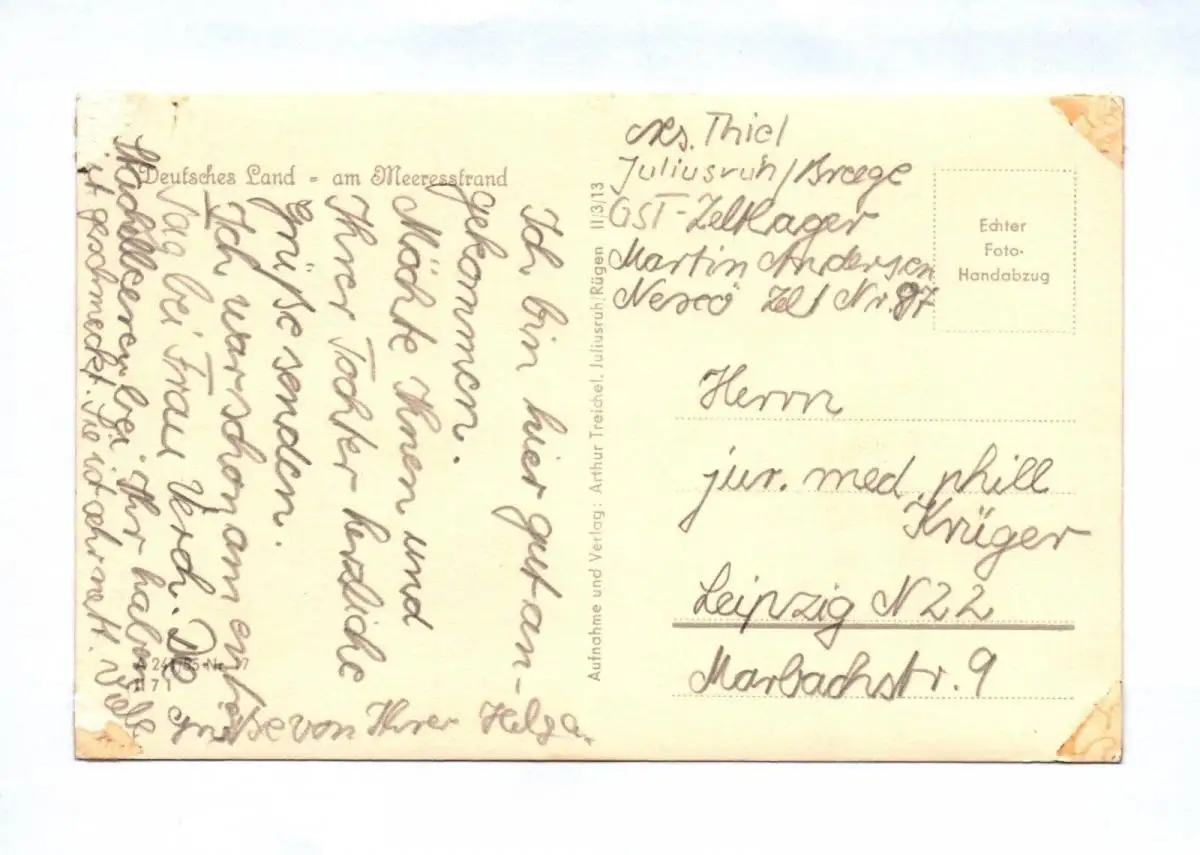 Deutsches Land - am Meeresstrand
Ich bin hier gut an-
gekommen.
Möchte Ihnen und
Ihrer Tochter herzliche
Grüße senden.
Ich war schon am ersten
Tag bei Frau Verch. Die
Stachelbeeren bei ihr haben
gut geschmeckt. Sie ist sehr nett. Viele
Grüße von Ihrer Helga.
II 7 1
Aufnahme und Verlag: Arthur Treichel, Juliusruh/Rügen II/3/13
Abs. Thiel
Juliusruh/Breege
GST-Zeltlager
Martin Andersen
Nexö Zelt Nr. 87
Echter
Foto-
Handabzug
Herrn
jur. med. phill
Krüger
Leipzig N 22
Marbachstr. 9